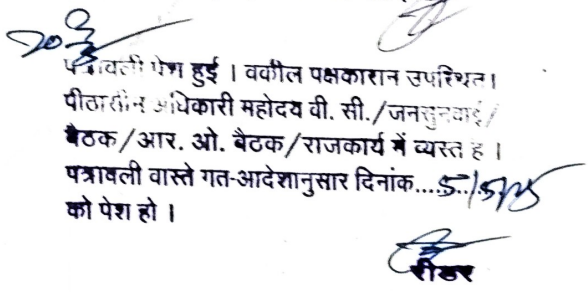 पत्रावली पेश हुई । वकील पक्षकारान उपस्थित।
पीठासीन अधिकारी महोदय वी. सी./जनसुनवाई/
बैठक/आर. ओ. बैठक/राजकार्य में व्यस्त है ।
पत्रावली वास्ते गत-आदेशानुसार दिनांक....5/5/25
को पेश हो ।
रीडर